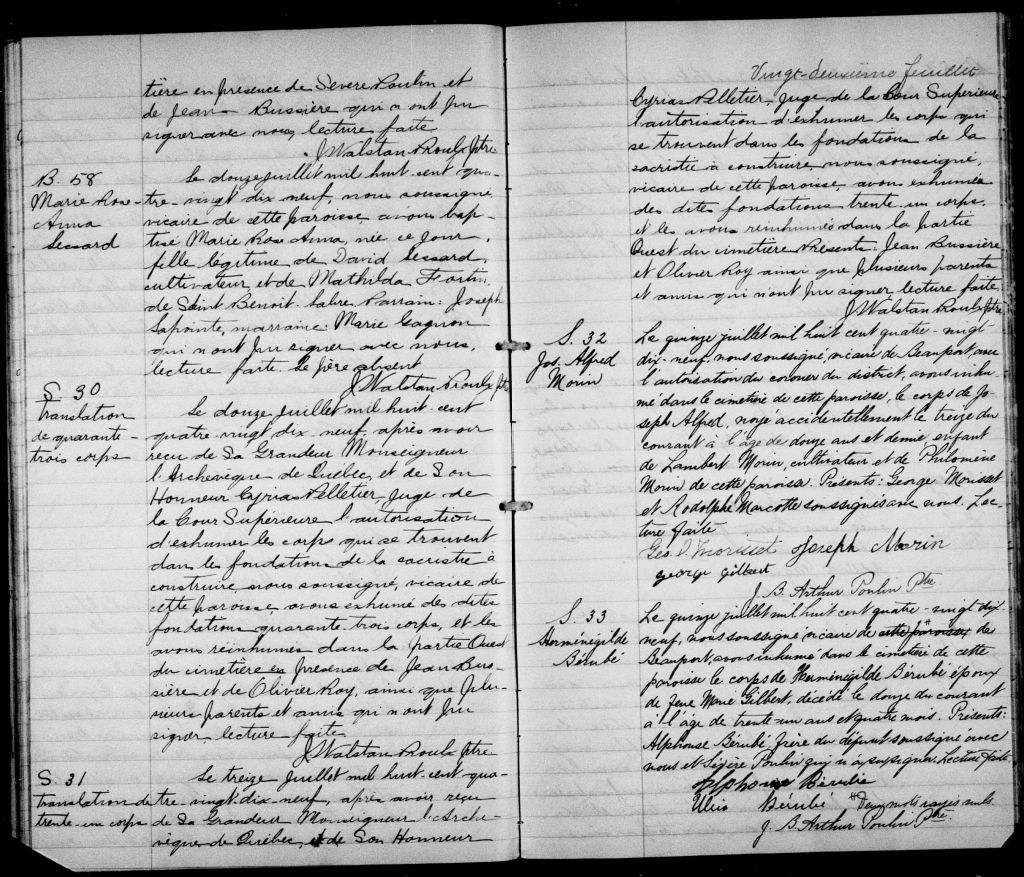 tière en présence de Sévère Poulin et
de Jean Bussière qui n'ont pu
signer avec nous, lecture faite
J Walstan Proulx Ptre
B. 58
Marie Rose
Anna
Lessard
Le douze juillet mil huit cent qua-
tre-vingt dix neuf, nous soussigné,
vicaire de cette paroisse avons bap-
tisé Marie Rose Anna, née ce jour,
fille légitime de David Lessard,
cultivateur, et de Mathilda Fortin,
de Saint Benoit-Labre. Parrain: Joseph
Lapointe, marraine: Marie Gagnon
qui n'ont pu signer avec nous,
lecture faite. Le père absent
J Walstan Proulx Ptre
S. 30
Translation
de quarante-
trois corps
Le douze juillet mil huit-cent
quatre-vingt dix neuf, après avoir
reçu de Sa Grandeur Monseigneur
l'Archevêque de Québec, et de Son
Honneur Cyrias Pelletier, Juge de
la Cour Supérieure l'autorisation
d'exhumer les corps qui se trouvent
dans les fondations de la sacristie à
construire nous soussigné, vicaire de
cette paroisse, avons exhumé des dites
fondations quarante-trois corps, et les
avons réinhumés dans la partie Ouest
du cimetière en présence de Jean Bus-
sière et de Olivier Roy, ainsi que plu-
sieurs parents et amis qui n'ont pu
signer, lecture faite
J Walstan Proulx Ptre
S. 31
translation de
trente-un corps
Le treize juillet mil huit-cent-qua-
tre-vingt-dix-neuf, après avoir reçu
de Sa Grandeur Monseigneur l'Arche-
vêque de Québec, et de Son Honneur
Vingt-deuxième feuillet
Cyrias Pelletier, Juge de la Cour Supérieure
l'autorisation d'exhumer les corps qui
se trouvent dans les fondations de la
sacristie à construire, nous soussigné,
vicaire de cette paroisse, avons exhumés
des dites fondations trente-un corps,
et les avons réinhumés dans la partie
Ouest du cimetière Présents: Jean Bussière
et Olivier Roy ainsi que plusieurs parents
et amis qui n'ont pu signer lecture faite
J Walstan Proulx Ptre
S. 32
Jos. Alfred
Morin
Le quinze juillet mil huit cent quatre-vingt-
dix-neuf, nous soussigné, vicaire de Beauport, avec
l'autorisation du coroner du district, avons inhu-
mé dans le cimetière de cette paroisse, le corps de Jo-
seph Alfred, noyé accidentellement le treize du
courant à l'âge de douze ans et demi, enfant
de Lambert Morin, cultivateur et de Philomène
Morin de cette paroisse. Présents: George Morisset
et Rodolphe Marcotte soussignés avec nous. Lec-
ture faite
Geo. O. Morisset Joseph Morin
george gilbert
J. B. Arthur Poulin Ptre
S. 33
Herménégilde
Bérubé
Le quinze juillet mil huit cent quatre-vingt dix
neuf, nous soussigné vicaire de cette paroisse, de
Beauport, avons inhumé dans le cimetière de cette
paroisse le corps de Herménégilde Bérubé époux
de feue Marie Gilbert, décédé le douze du courant
à l'âge de trente-un ans et quatre mois. Présents:
Alphonse Bérubé, frère du défunt soussigné avec
nous et Légère Poulin qui n'a pu signer. Lecture faite
Alphonse Bérubé
Bérubé "Deux mots rayés nuls
J. B. Arthur Poulin Ptre.